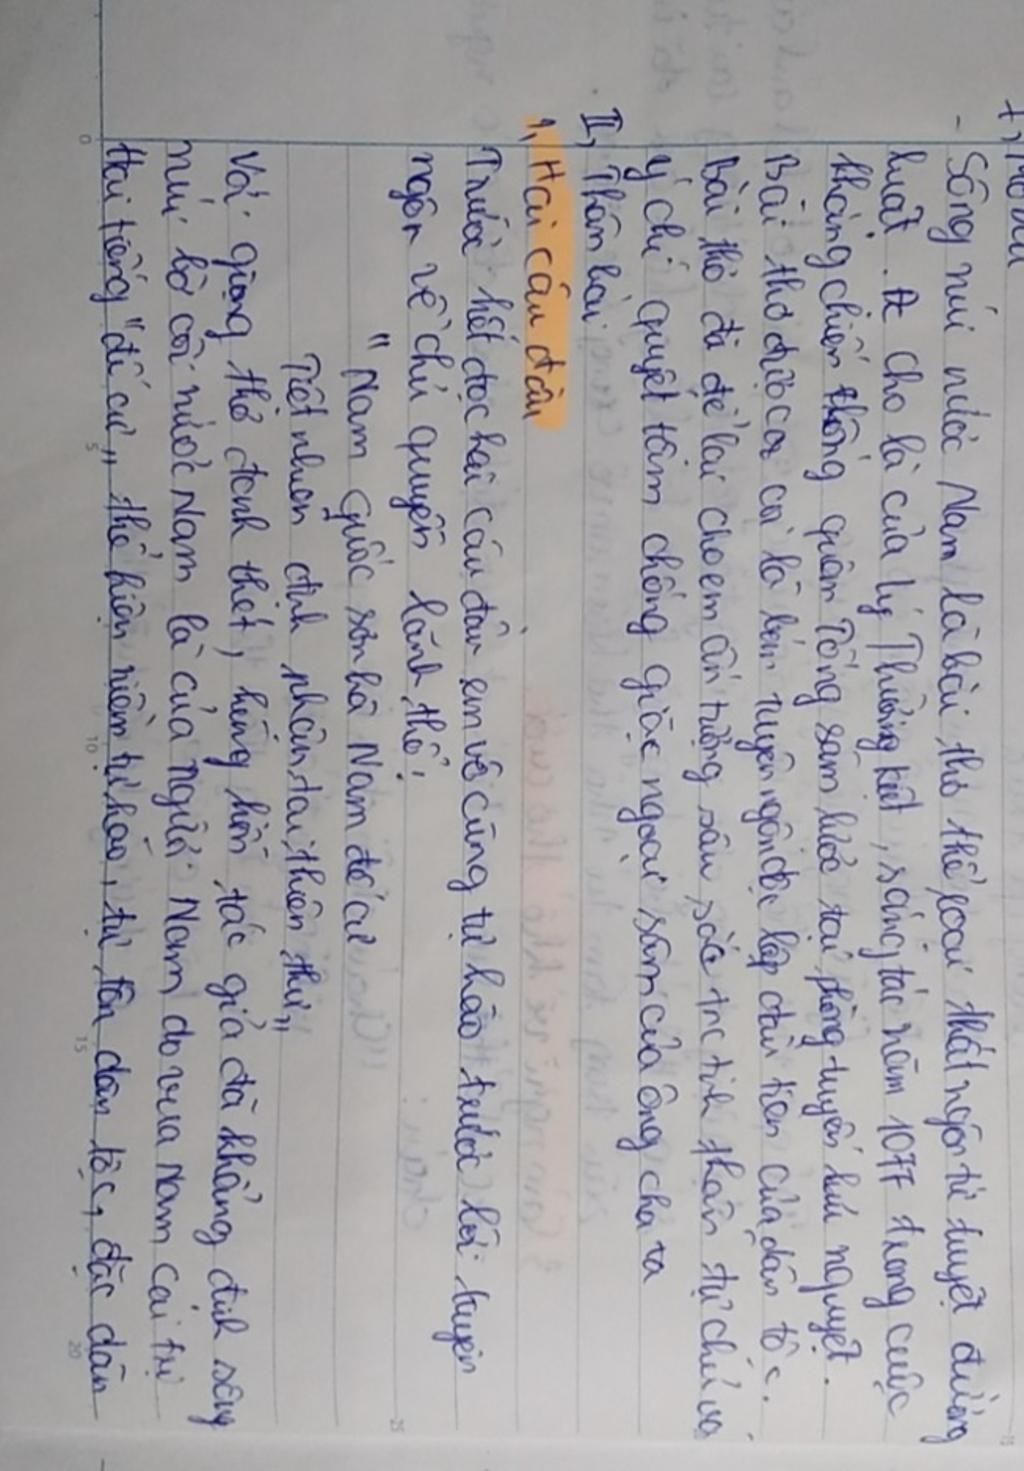 I, Mở bài
- Sông núi nước Nam là bài thơ thể loại thất ngôn tứ tuyệt đường
luật. It cho là của Lý Thường Kiệt, sáng tác năm 1077 trong cuộc
kháng chiến thống quân Tống xâm lược tại phòng tuyến hữu nguyệt.
Bài thơ được coi là bản tuyên ngôn độc lập đầu tiên của dân tộc.
Bài thơ đã để lại cho em ấn tượng sâu sắc trc tinh thần tự chủ và
ý chí quyết tâm chống giặc ngoại xâm của ông cha ta
II, Thân bài
1, Hai câu đầu
Trước hết đọc hai câu đầu em vô cùng tự hào trước lời tuyên
ngôn về chủ quyền lãnh thổ:
"Nam quốc sơn hà Nam đế cư
Tiệt nhiên định phận tại thiên thư"
Với giọng thơ đanh thét, hùng hồn, tác giả đã khẳng định sông
núi, bờ cõi nước Nam là của người Nam do vua Nam cai trị
Hai tiếng "đế cư" thể hiện niềm tự hào, tự tôn dân tộc, đặc dân
0
5
10
15
20
25
15